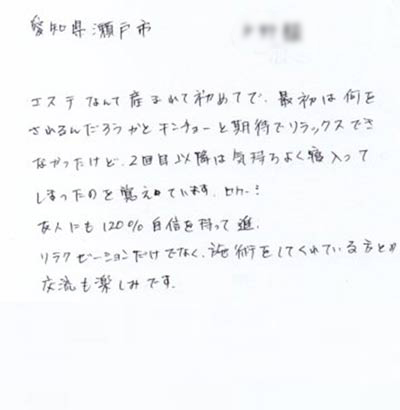 愛知県瀬戸市
エステなんて産まれて初めてで、最初は何を
されるんだろうかとキンチョーと期待でリラックスでき
なかったけど、2回目以降は気持ちよく寝入って
しまったのを覚えています。
友人にも120%自信を持って進
リラクゼーションだけでなく、施術をしてくれている方との
交流も楽しみです。